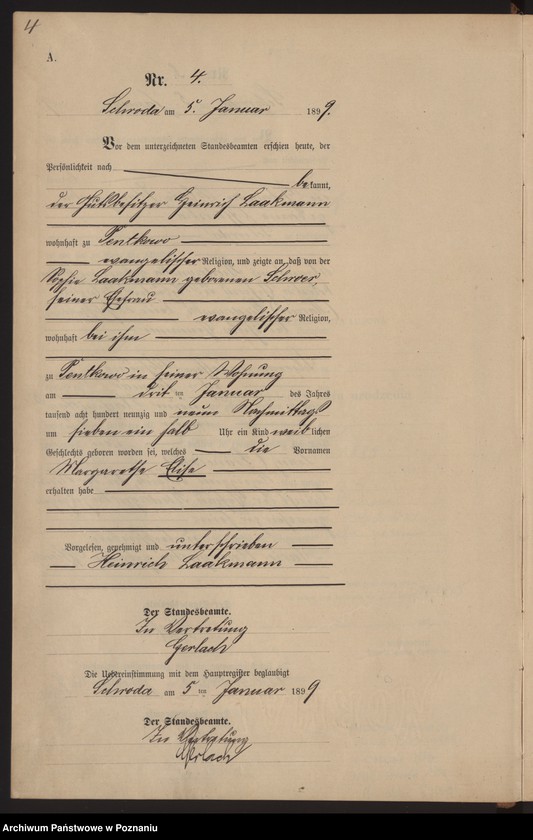 4
A.
Nr. 4.
Schroda am 5. Januar 1899.
Vor dem unterzeichneten Standesbeamten erschien heute, der
Persönlichkeit nach
bekannt,
der Gutsbesitzer Heinrich Laakmann
wohnhaft zu Pentkowo
evangelischer Religion, und zeigte an, daß von der
Sophie Laakmann geborenen Schroer,
seiner Ehefrau
evangelischer Religion,
wohnhaft bei ihm
zu Pentkowo in seiner Wohnung
am drit ten Januar des Jahres
tausend acht hundert neunzig und neun Nachmittags
um sieben ein halb Uhr ein Kind weib lichen
Geschlechts geboren worden sei, welches die Vornamen
Margarethe Elise
erhalten habe
Vorgelesen, genehmigt und unterschrieben
Heinrich Laakmann
Der Standesbeamte.
In Vertretung
Gerlach
Die Uebereinstimmung mit dem Hauptregister beglaubigt
Schroda am 5 ten Januar 1899
Der Standesbeamte.
In Vertretung
Gerlach
Archiwum Państwowe w Poznaniu